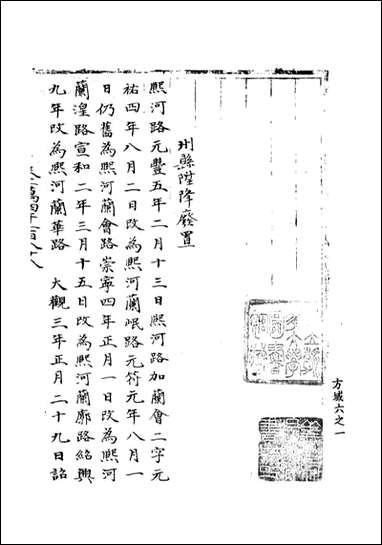 方域六之一
州縣陞降廢置
熙河路元豐五年二月十三日熙河路加蘭會二字元
祐四年八月二日改為熙河蘭岷路元符元年八月一
日仍舊為熙河蘭會路崇寧四年正月一日改為熙河
蘭湟路宣和二年三月十五日改為熙河蘭廓路紹興
九年改為熙河蘭鞏路 大觀三年正月二十九日詔